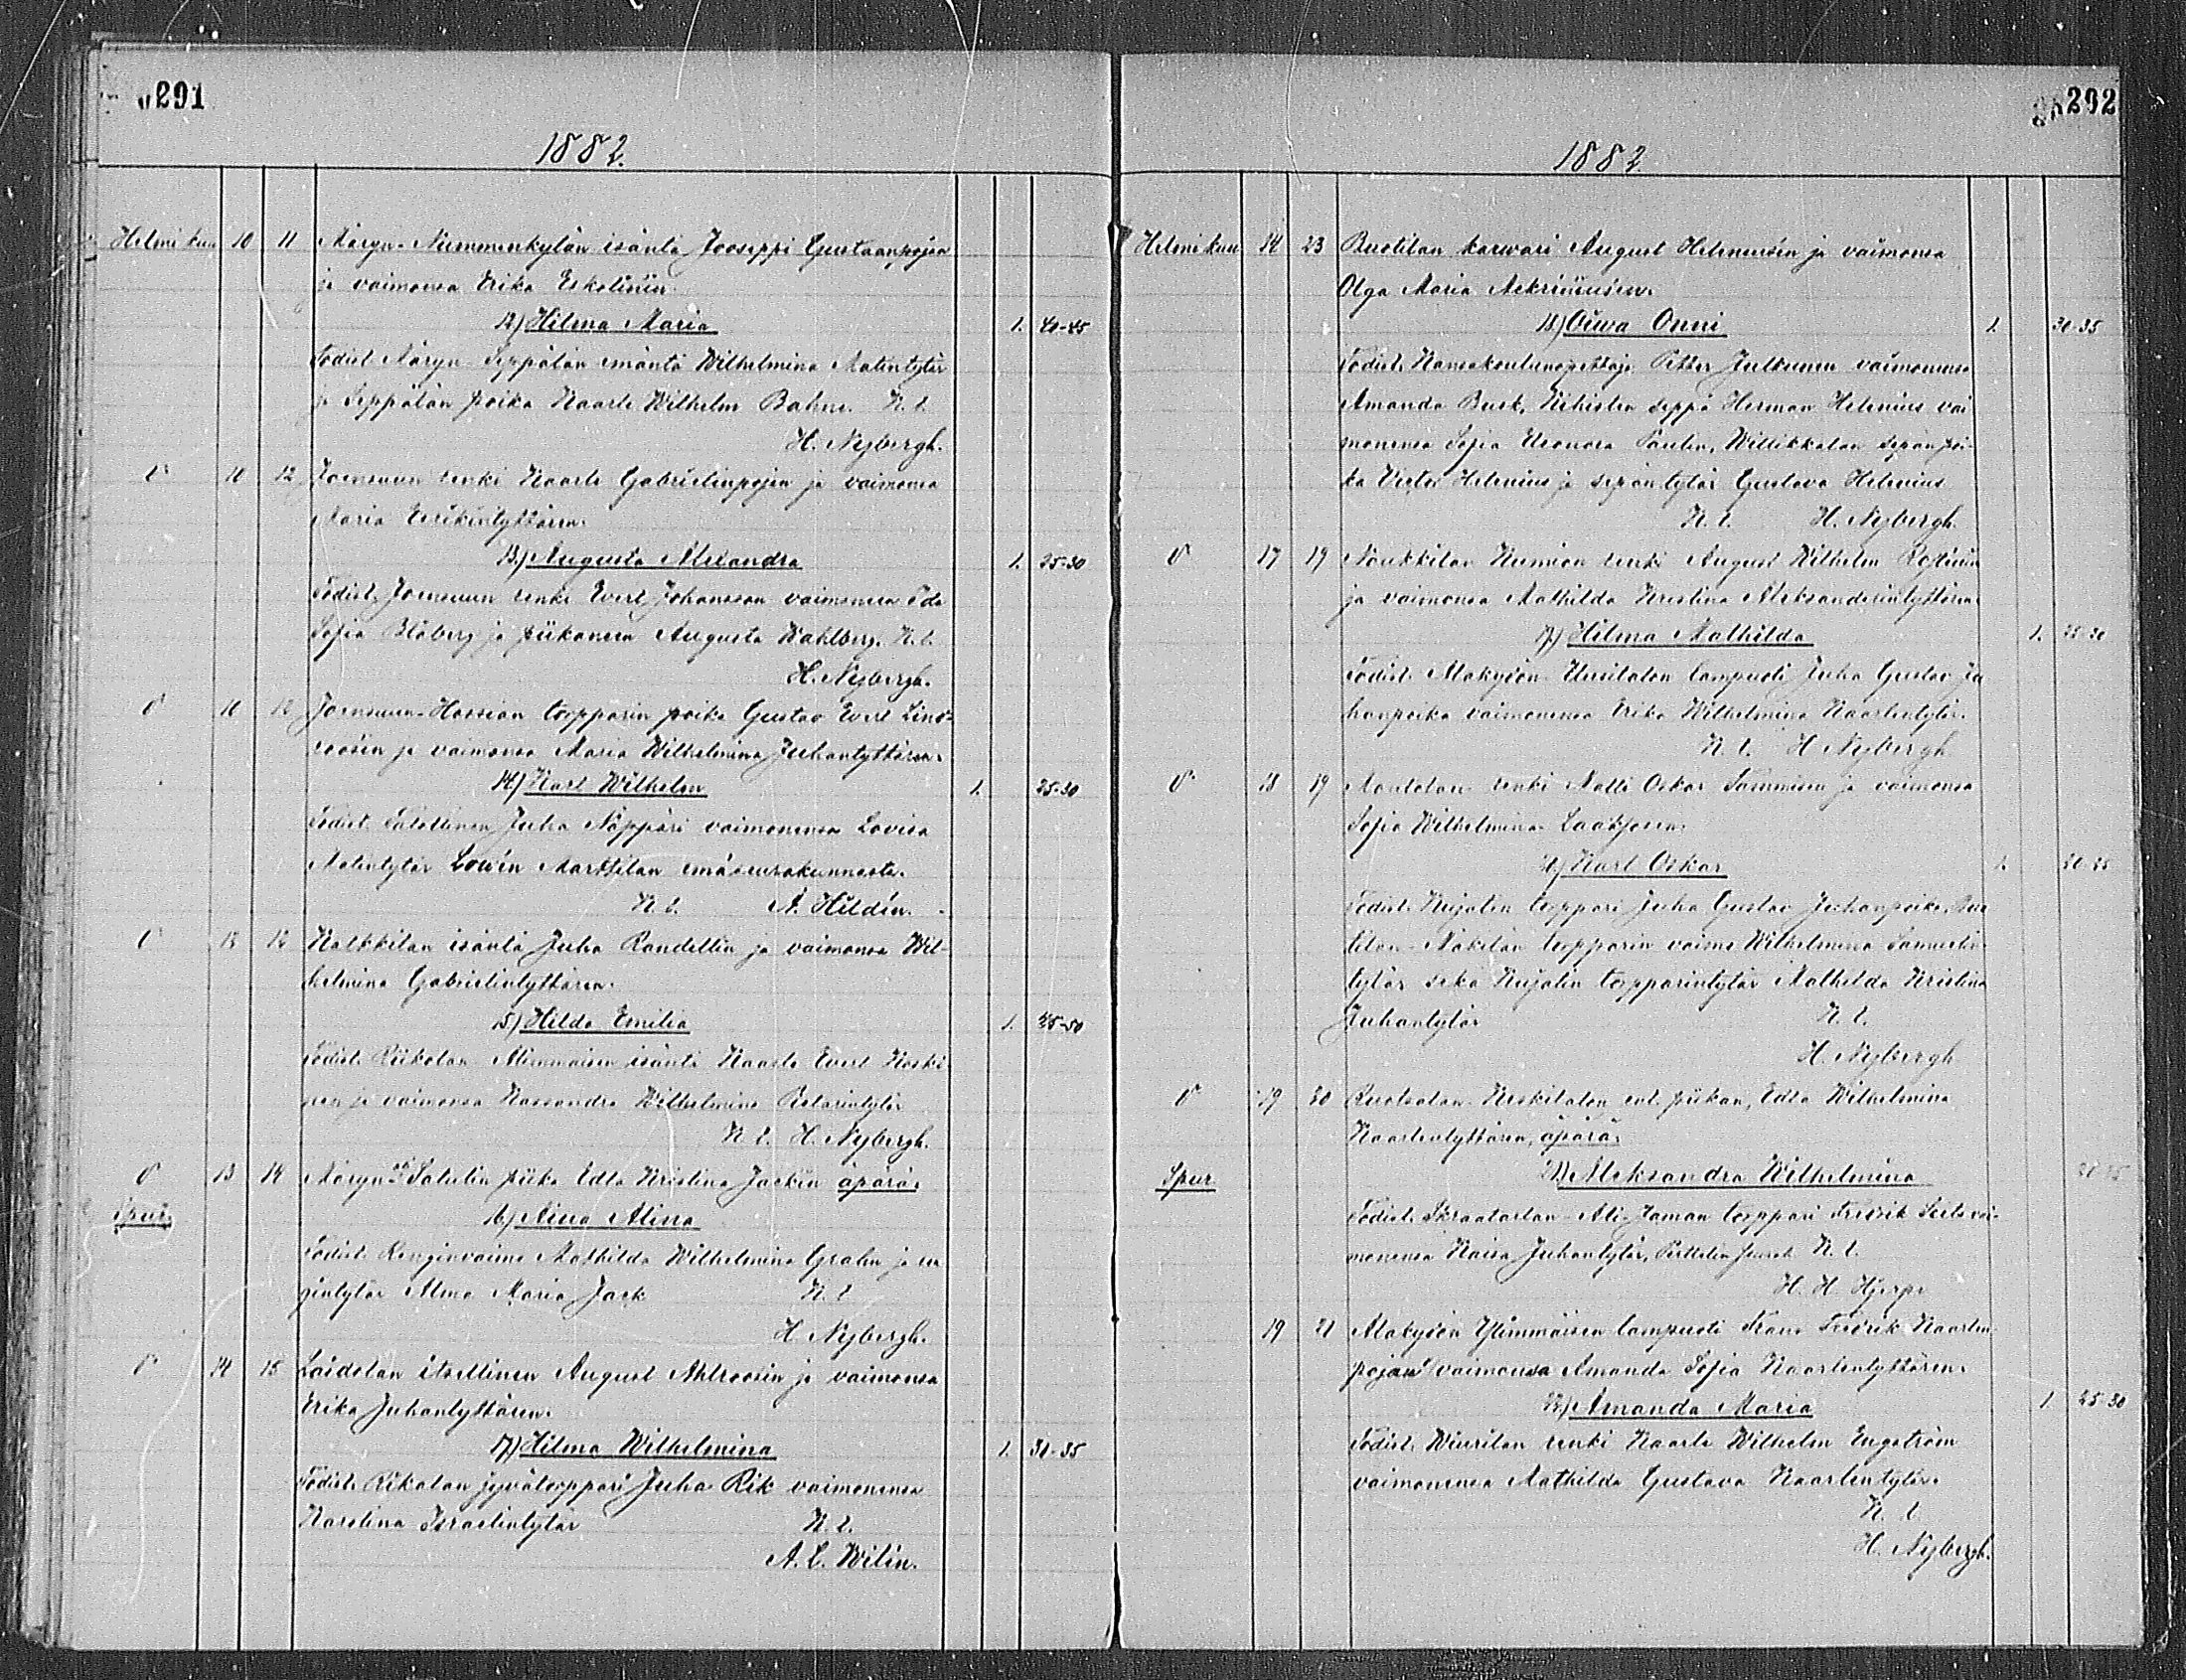 291
1882.
Helmi kuu 10 11 Näryn-Nummenkylän isäntä Jooseppi Gustaanpojan
ja vaimonsa Erika Eskolinin
12) Hilma Maria 1. 40-45
Todist. Näryn-Seppälän emäntä Wilhelmina Matintytär
ja Seppälän poika Kaarle Wilhelm Bahne. K. l.
H. Nybergh.
10 12 Joensuun renki Kaarle Gabrielinpojan ja vaimonsa
Maria Eerikintyttären.
13) Augusta Alexandra 1. 25-30
Todist. Joensuun renki Evert Johansson vaimonensa Ida
Sofia Blåberg ja piikanen Augusta Wahlberg. K. l.
H. Nybergh.
10 12 Joensuun-Hossian torpparin poika Gustav Evert Lind-
roosin ja vaimonsa Maria Wilhelmina Juhantyttären.
14) Karl Wilhelm 1. 25-30
Todist. Juha Näppäri vaimonensa Lovisa
Matintytär Lowén Marttilan emäseurakunnasta.
K. l. A. Hildén.
12 Kalkkilan isäntä Juha Randellin ja vaimonsa Wil-
helmina Gabrielintyttären.
15) Hilda Emilia 1. 45-50
Todist. Riikolan Alimmaisen isäntä Kaarle Evert Koski-
nen ja vaimonsa Kassandra Wilhelmina
K. l. H. Nybergh.
13 14 Näryn Satulin piika Edla Kristina Jackin äpärä.
Spur. 16) Aina Alina
Todist. Renginvaimo Mathilda Wilhelmina Grahn ja ren
gintytär Alma Maria Jack K. l.
H. Nybergh.
14 15 Laidolan itsellinen August Ahlroosin ja vaimonsa
Erika Juhantyttären.
17) Hilma Wilhelmina 1. 30-35
Todist. Rikalan jyvätorppari Juha Rik vaimonensa
Karolina Israelintytär K. l.
A. E. Wilén.
292
1882.
Helmi kuu 14 23 Ruotilan karwari August Heleniusen ja vaimonsa
Olga Maria
18) Oiwa Onni 1. 30-35
Todist. Kansakoulunopettaja Petter Julkunen vaimonensa
Amanda Busk, Kihislan seppä Herman Helenius vai
monensa Sofia Eleonora Paulin, Willikkalan sepän poi-
ka Victor Helenius ja sepäntytär Gustava Helenius
K. l. H. Nybergh.
17 19 Noukkilan renki August Wilhelm
ja vaimonsa Mathilda Kristina Aleksanderintyttären
19) Hilma Mathilda 1. 25-30
Todist. Uusitalon lampuoti Juha Gustav Ju
hanpoika vaimonensa Erika Wilhelmina Kaarlentytär.
K. l. H Nybergh
18 19 renki Matti Oskar Tammisen ja vaimonsa
Sofia Wilhelmina Laaksosen.
20) Karl Oskar 1. 30-35
Todist. Kujalin torppari Juha Gustav Juhanpoika,
Mäkelän torpparin vaimo Wilhelmina Samuelin-
tytär sekä Kujalin torpparintytär Mathilda Kristina
Juhantytär K. l.
H. Nybergh
19 20 Ruotsalan Keskitalon ent. piikan, Edla Wilhelmina
Kaarlentyttären, äpärä.
Spur 21) Aleksandra Wilhelmina 20-25
Todist. torppari Fredrik vai-
monensa Kaisa Juhantytär, K. l.
H. H. Hjerpe
19 21 Ylimmäisen lampuoti Frans Fredrik Kaarlen
pojan vaimonsa Amanda Sofia Kaarlentyttären.
22) Amanda Maria 1. 25-30
Todist. Wiurilan renki Kaarle Wilhelm Engström
vaimonensa Mathilda Gustava Kaarlentytär.
K. l.
H. Nybergh.